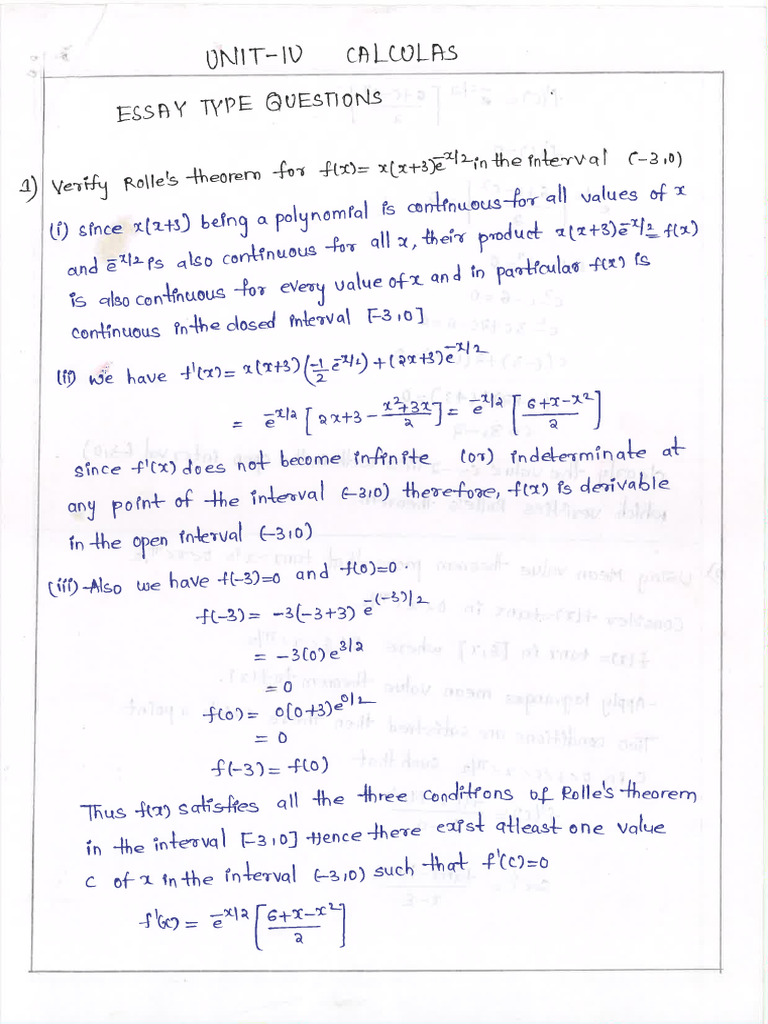 UNIT-IV CALCULAS
ESSAY TYPE QUESTIONS
1) Verify Rolle's theorem for f(x)= x(x+3)e^-x/2 in the interval (-3,0)
(i) since x(x+3) being a polynomial is continuous for all values of x
and e^-x/2 is also continuous for all x, their product x(x+3)e^-x/2 = f(x)
is also continuous for every value of x and in particular f(x) is
continuous in the closed interval [-3,0]
(ii) we have f'(x)= x(x+3)(-1/2 e^-x/2)+(2x+3)e^-x/2
= e^-x/2 [2x+3 - (x²+3x)/2] = e^-x/2 [(6+x-x²)/2]
since f'(x) does not become infinite (or) indeterminate at
any point of the interval (-3,0) therefore, f(x) is derivable
in the open interval (-3,0)
(iii) Also we have f(-3)=0 and f(0)=0
f(-3) = -3(-3+3) e^-(-3)/2
= -3(0)e^3/2
= 0
f(0) = 0(0+3)e^0/2
= 0
f(-3) = f(0)
Thus f(x) satisfies all the three conditions of Rolle's theorem
in the interval [-3,0] Hence there exist atleast one value
C of x in the interval (-3,0) such that f'(C)=0
f'(x) = e^-x/2 [(6+x-x²)/2]